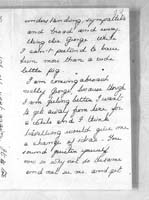 understanding, sympathetic
and broad and every
thing else George. Well
I can't pretend to have
been more than a wee
little pig.
I am coming abroad
really George because though
I am getting better I want
to get away from here for
a while and I think
travelling would give me
a change of ideas. You
must prepare yourself
now in
and not me and get